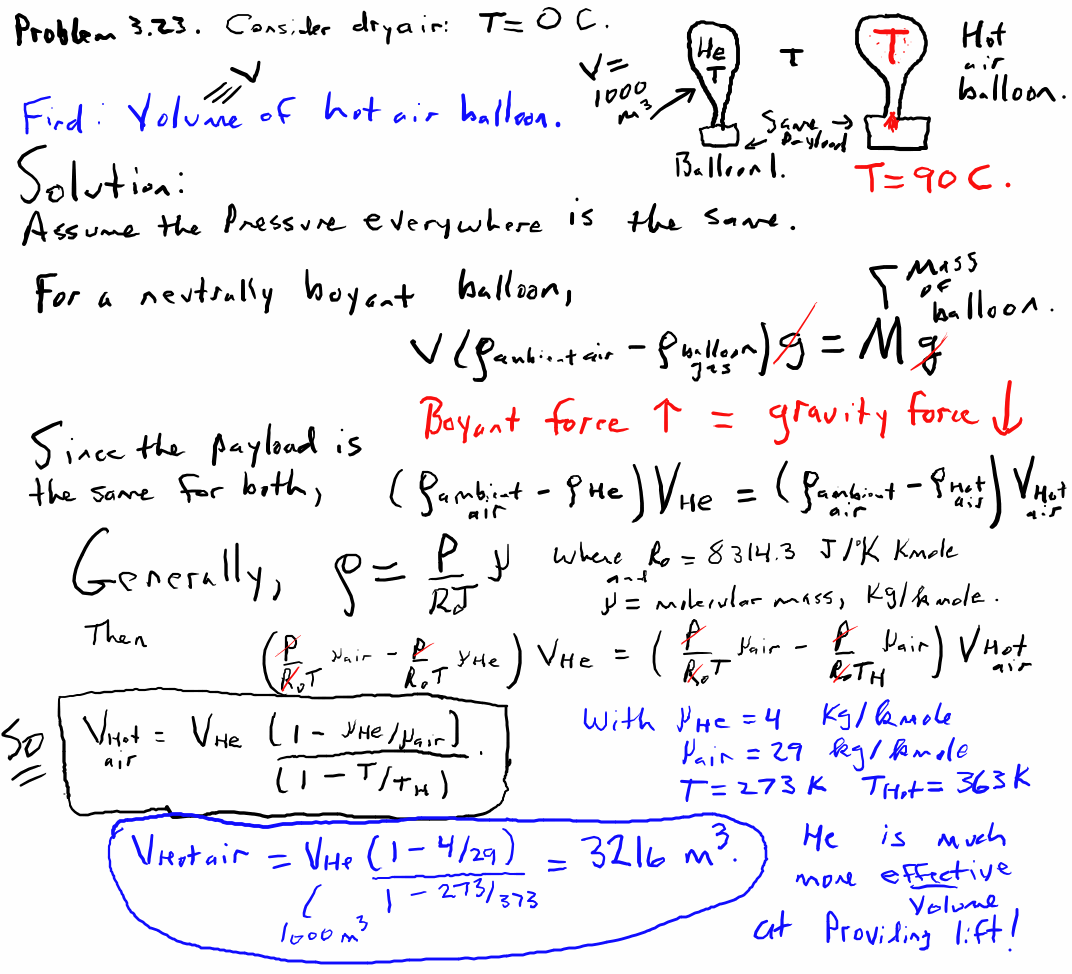 Problem 3.23. Consider dry air: T = 0 C.
V = 1000 m³
He T
T
T
Hot air balloon.
Same Payload
Balloon 1.
T = 90 C.
V
Find: Volume of hot air balloon.
Solution:
Assume the Pressure everywhere is the same.
For a neutrally boyant balloon,
Mass of balloon.
V (ρ ambient air - ρ balloon gas) g = M g
Boyant force ↑ = gravity force ↓
Since the payload is
the same for both, (ρ ambient air - ρ He) V He = (ρ ambient air - ρ Hot air) V Hot air
Generally, ρ = P/R₀T μ where R₀ = 8314.3 J/°K Kmole
and μ = molecular mass, Kg/kmole.
Then
(P/R₀T μair - P/R₀T μHe) VHe = (P/R₀T μair - P/R₀TH μair) V Hot air
So V Hot air = VHe (1 - μHe/μair) / (1 - T/TH).
With μHe = 4 Kg/kmole
μair = 29 kg/kmole
T = 273 K THot = 363 K
VHot air = VHe (1 - 4/29) / 1 - 273/373 = 3216 m³.
1000 m³
He is much
more effective
volume
at Providing lift!